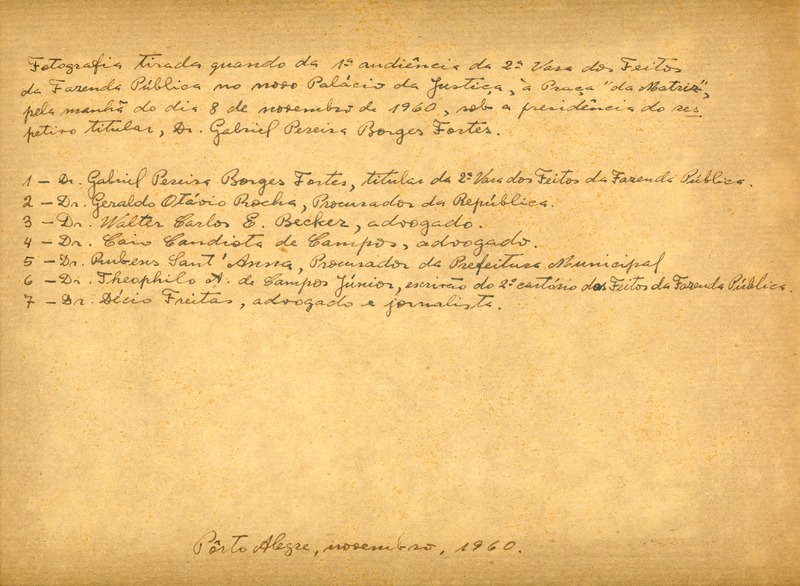 Fotografia tirada quando da 1ª audiência da 2ª Vara dos Feitos
da Fazenda Pública no novo Palácio da Justiça, à Praça "da Matriz",
pela manhã do dia 8 de novembro de 1960, sob a presidência do res
petivo titular, Dr. Gabriel Pereira Borges Fortes.
1 – Dr. Gabriel Pereira Borges Fortes, titular da 2ª Vara dos Feitos da Fazenda Pública.
2 – Dr. Geraldo Otávio Rocha, Procurador da República.
3 – Dr. Walter Carlos E. Becker, advogado.
4 – Dr. Caio Candiota de Campos, advogado.
5 – Dr. Rubens Sant'Anna, Procurador da Prefeitura Municipal
6 – Dr. Theophilo A. de Campos Júnior, escrivão do 2º cartório dos Feitos da Fazenda Pública.
7 – Dr. Décio Freitas, advogado e jornalista.
Pôrto Alegre, novembro, 1960.